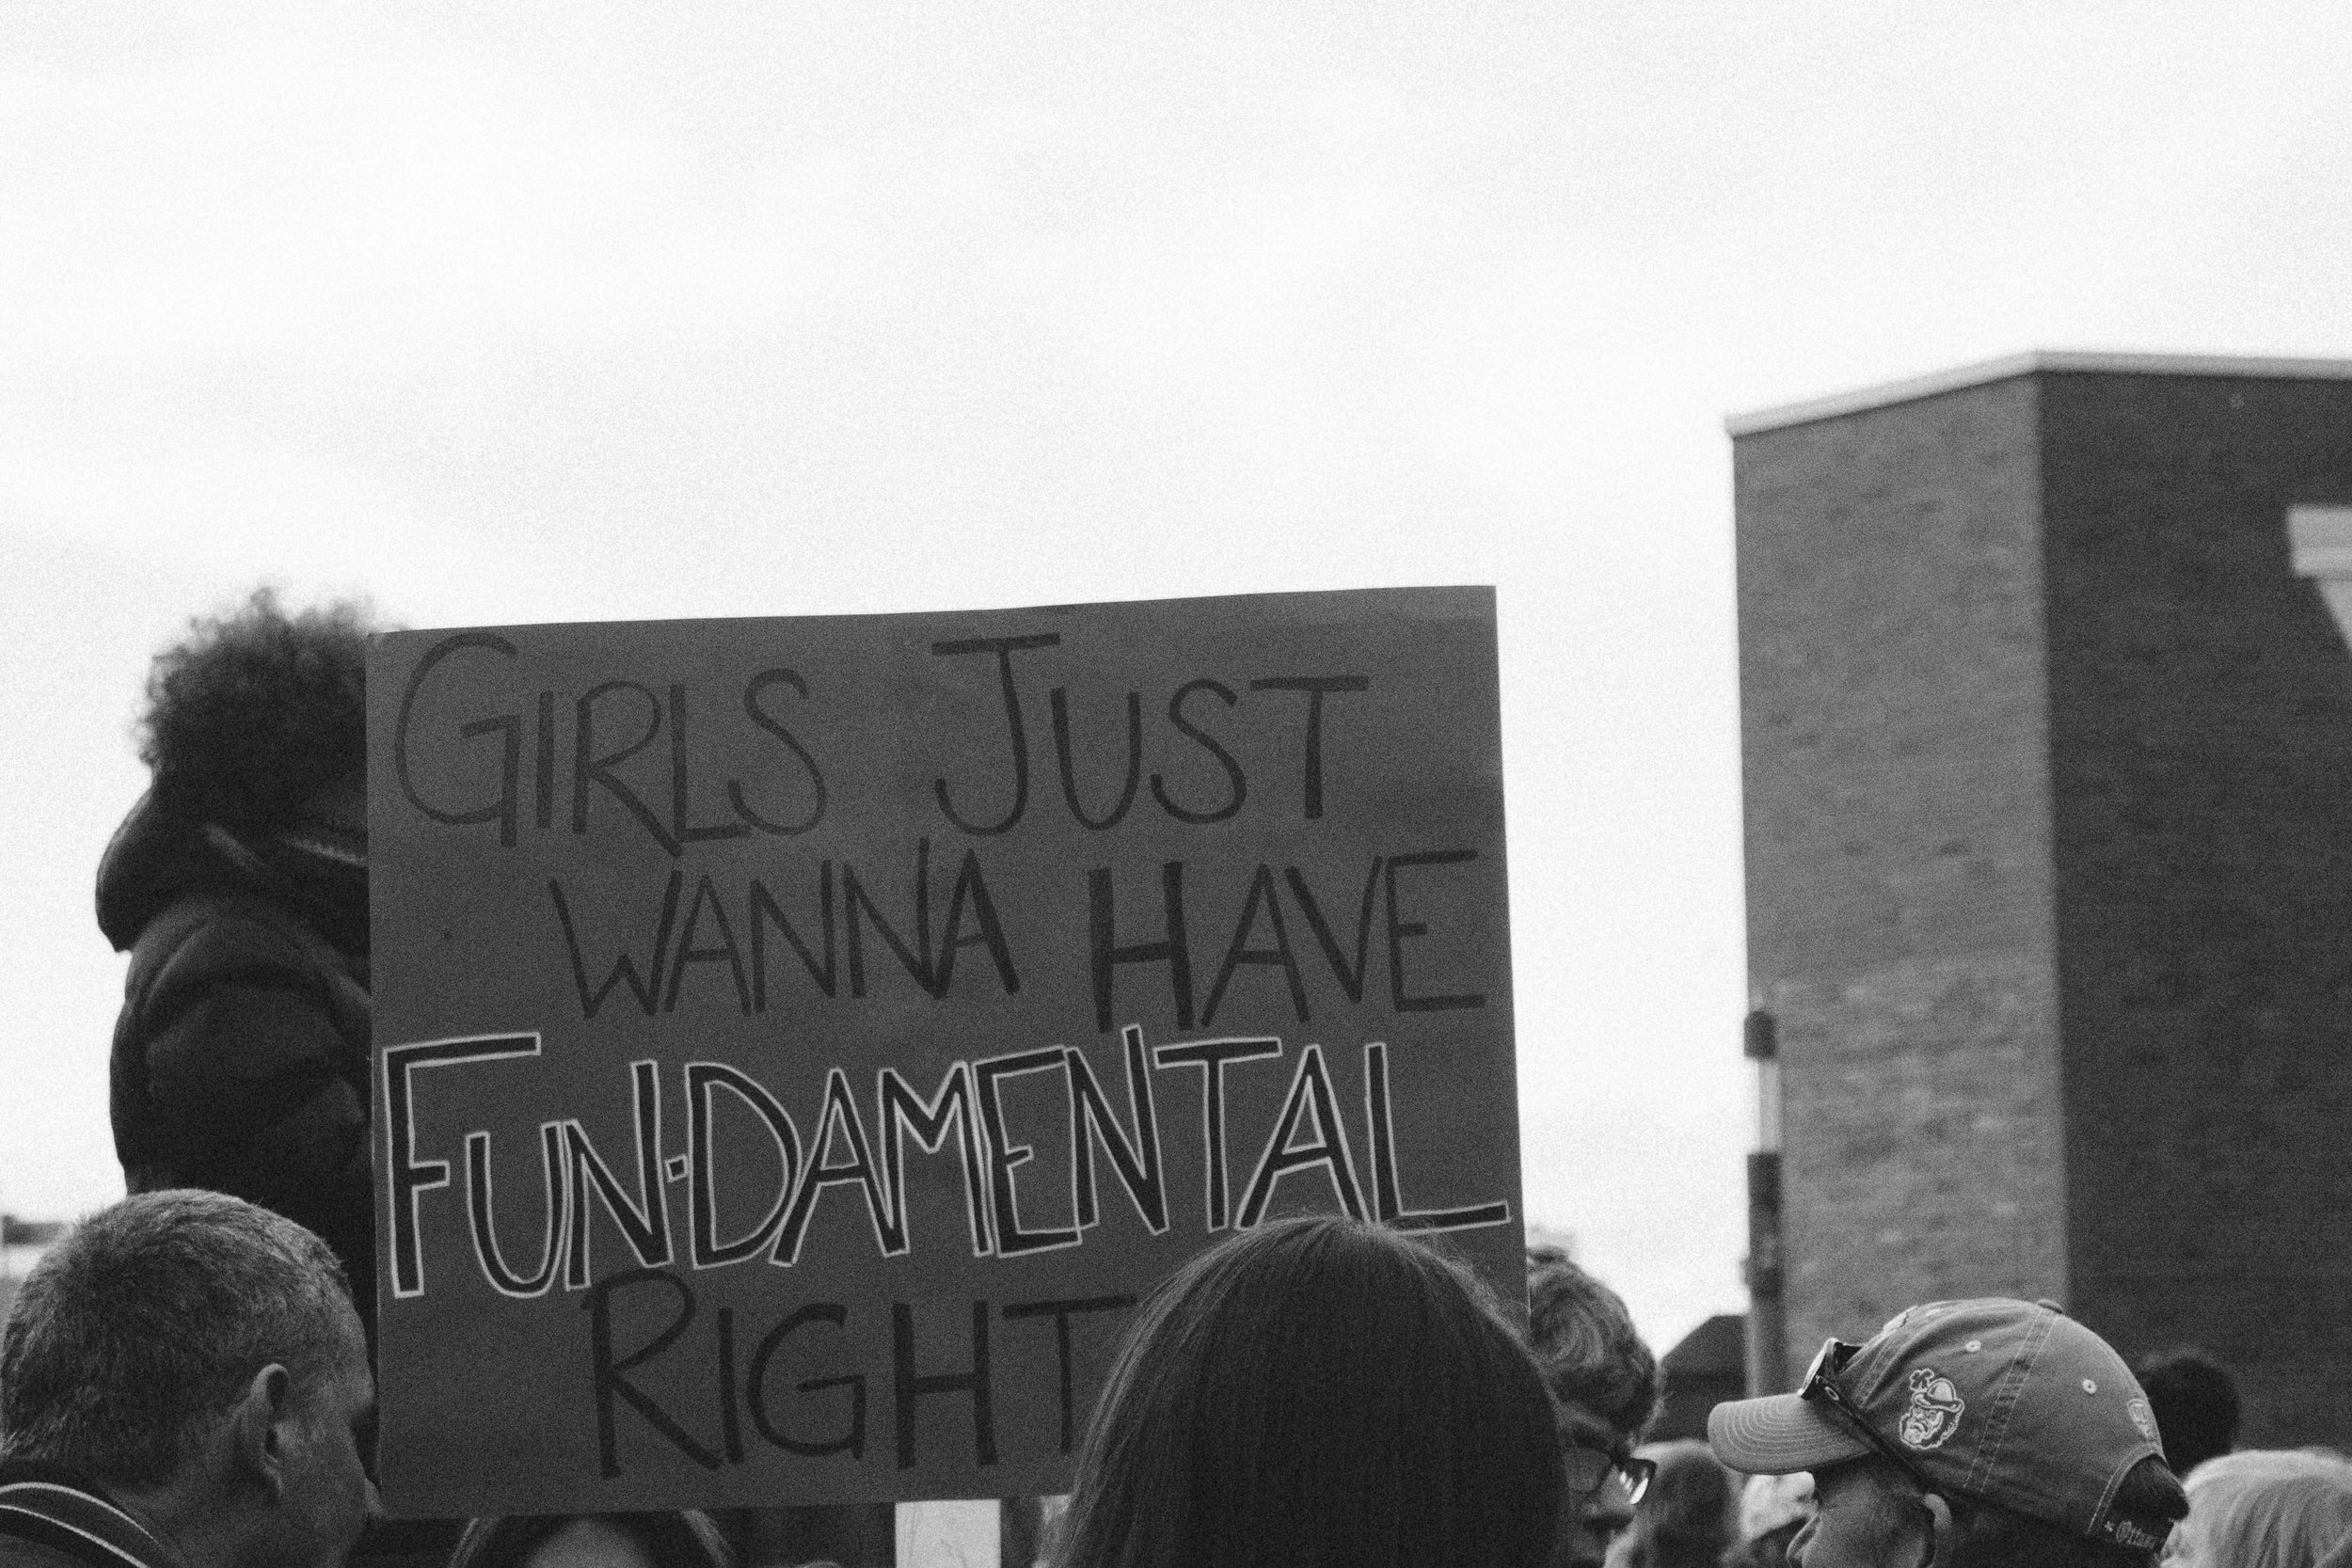 GIRLS JUST
WANNA HAVE
FUN·DAMENTAL
RIGHT